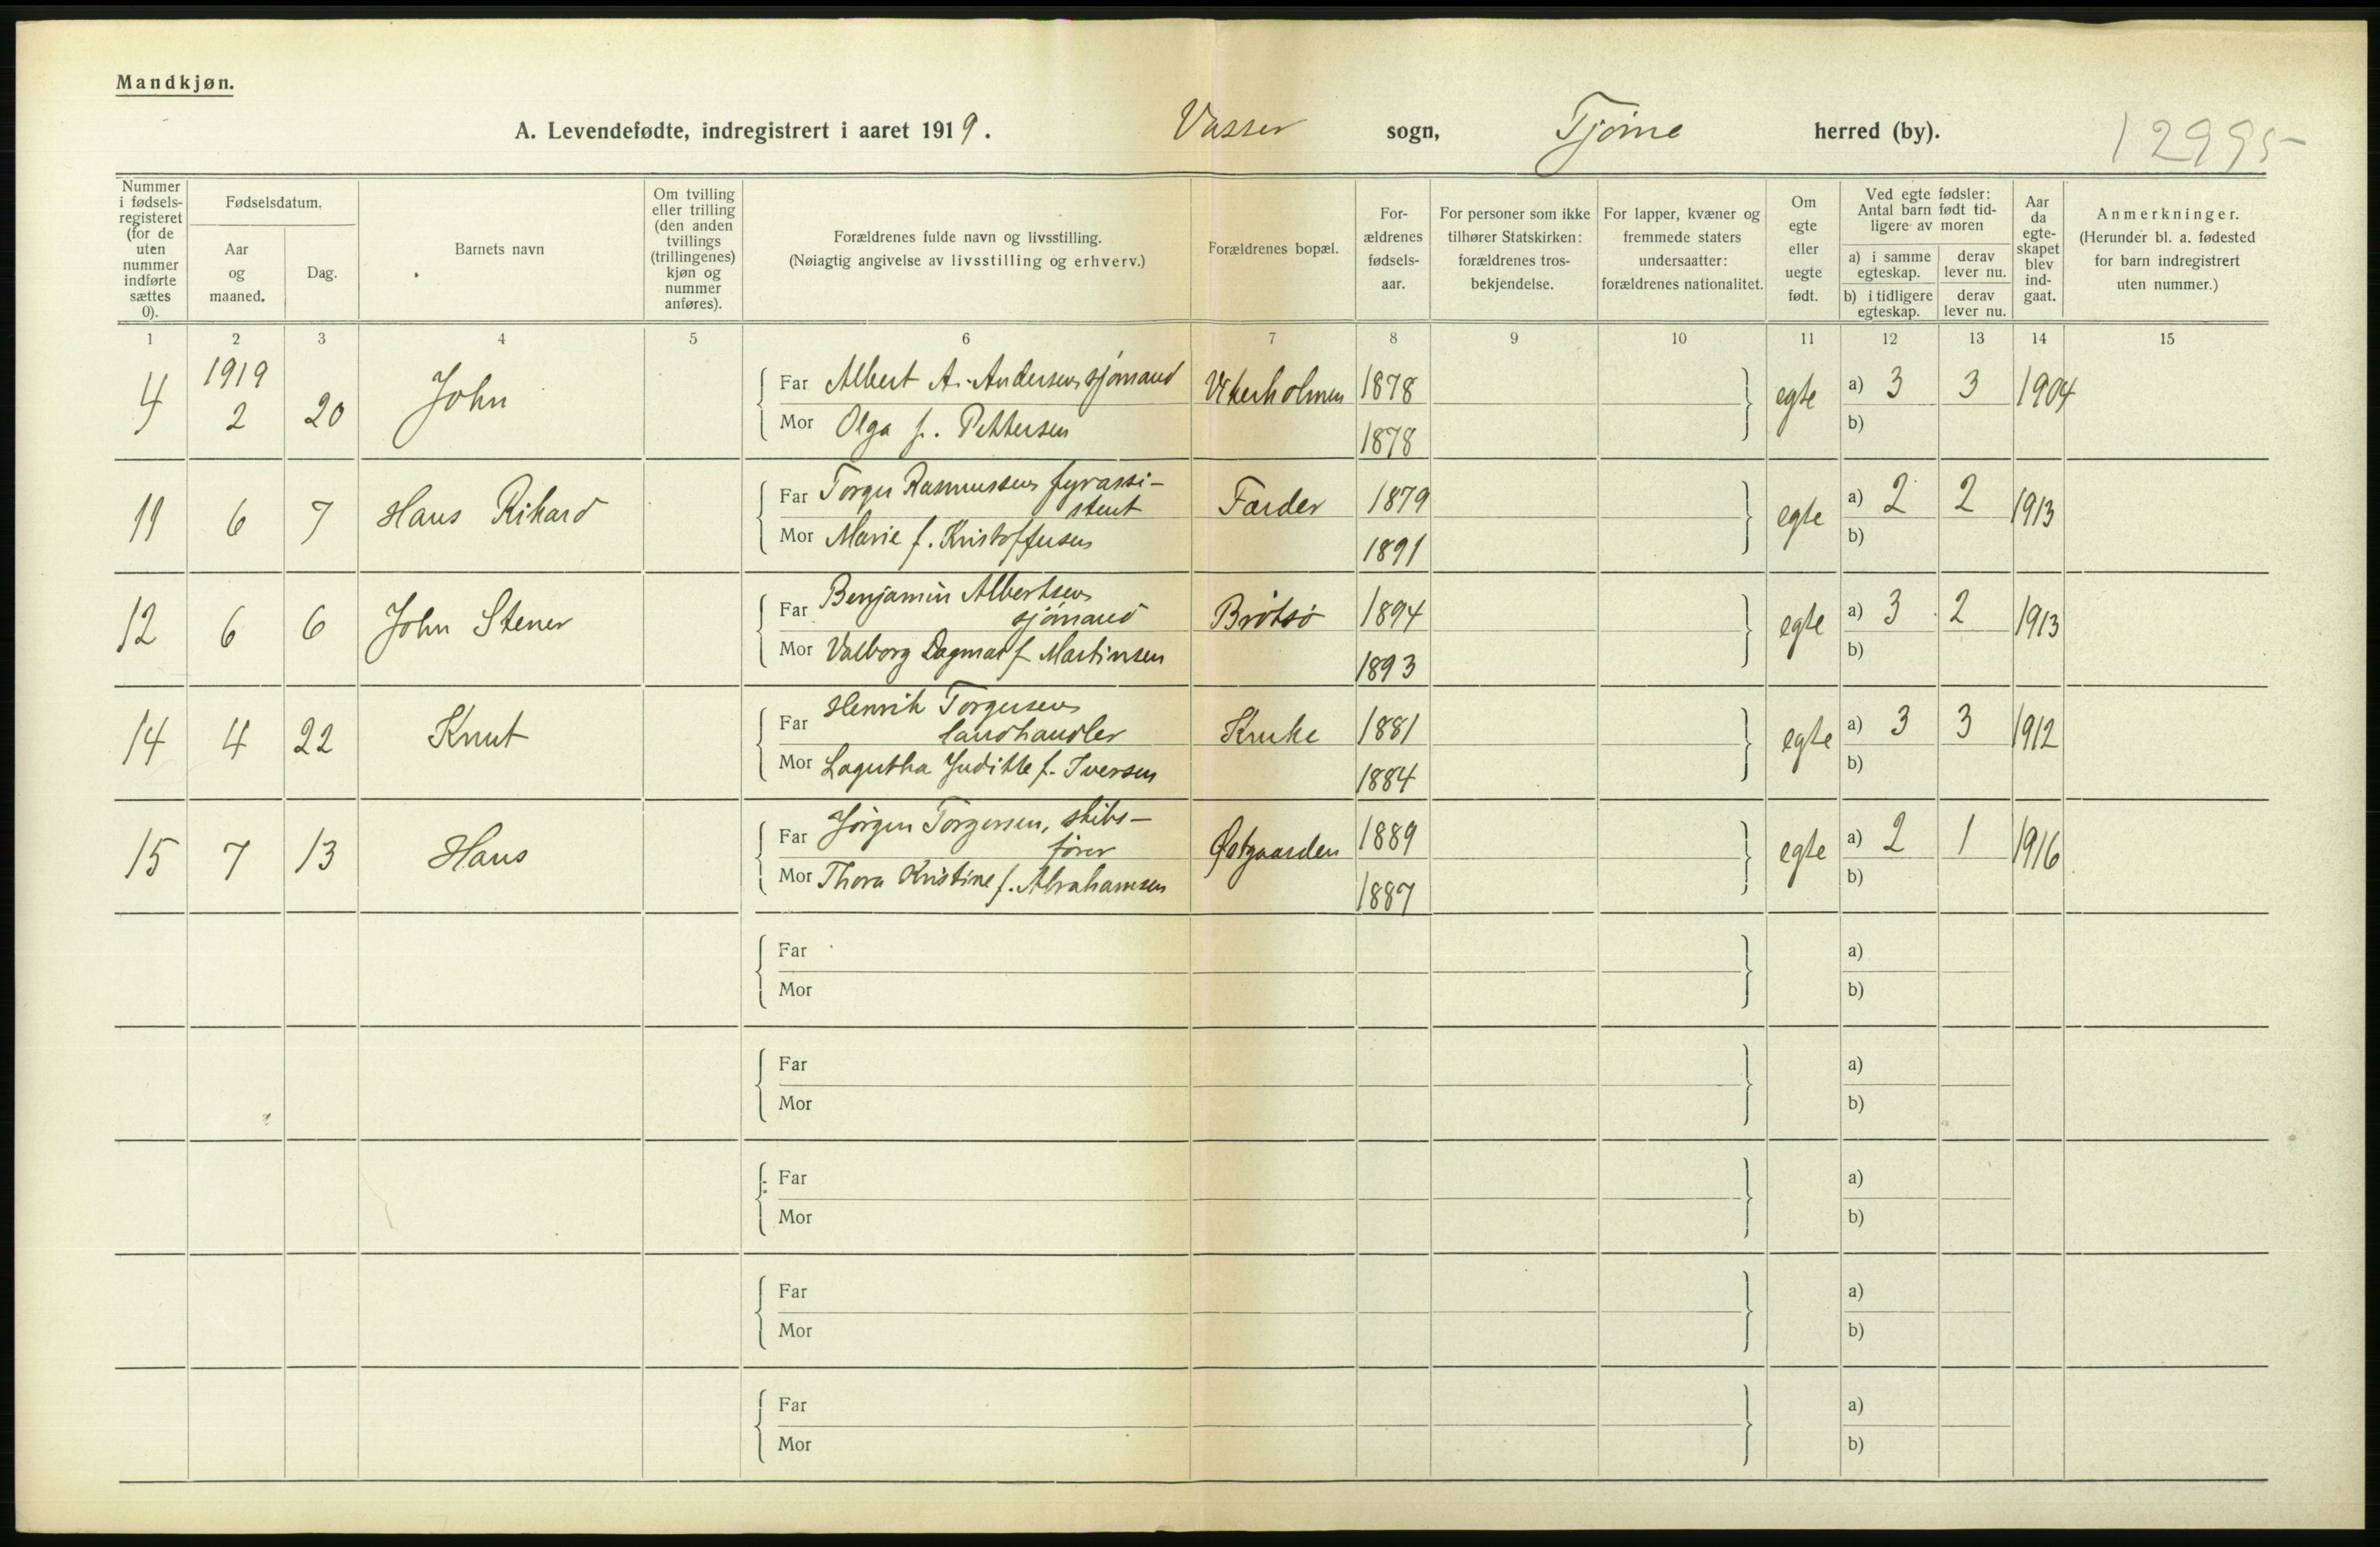 Mandkjøn.
A. Levendefødte, indregistrert i aaret 1919. Vasser sogn, Tjøme herred (by). 12995
Nummer i fødselsregisteret (for de uten nummer indførte sættes 0).
Fødselsdatum.
Aar og maaned.
Dag.
Barnets navn
Om tvilling eller trilling (den anden tvillings (trillingenes) kjøn og nummer anføres).
Forældrenes fulde navn og livsstilling.
(Nøiagtig angivelse av livsstilling og erhverv.)
Forældrenes bopæl.
For-
ældrenes
fødsels-
aar.
For personer som ikke
tilhører Statskirken:
forældrenes tros-
bekjendelse.
For lapper, kvæner og
fremmede staters
undersaatter:
forældrenes nationalitet.
Om
egte
eller
uegte
født.
Ved egte fødsler:
Antal barn født tid-
ligere av moren
a) i samme egteskap.
derav lever nu.
b) i tidligere egteskap.
derav lever nu.
Aar
da
egte-
skapet
blev
ind-
gaat.
Anmerkninger.
(Herunder bl. a. fødested
for barn indregistrert
uten nummer.)
1 2 3 4 5 6 7 8 9 10 11 12 13 14 15
1919
4 2 20 John Far Albert A. Andersen, sjømand Vikerholmen 1878 egte a) 3 3 1904
Mor Olga f. Pettersen 1878 b)
11 6 7 Hans Rikard Far Torger Rasmussen fyrassi-
stent Færder 1879 egte a) 2 2 1913
Mor Marie f. Kristoffersen 1891 b)
12 6 6 John Stener Far Benjamin Albertsen
sjømand Brøtsø 1894 egte a) 3 2 1913
Mor Valborg Dagmar f. Martinsen 1893 b)
14 4 22 Knut Far Henrik Torgersen
landhandler Kruke 1881 egte a) 3 3 1912
Mor Lagertha Juditte f. Iversen 1884 b)
15 7 13 Hans Far Jørgen Torgersen, skibs-
fører Østgaarden 1889 egte a) 2 1 1916
Mor Thora Kristine f. Abrahamsen 1887 b)
Far a)
Mor b)
Far a)
Mor b)
Far a)
Mor b)
Far a)
Mor b)
Far a)
Mor b)